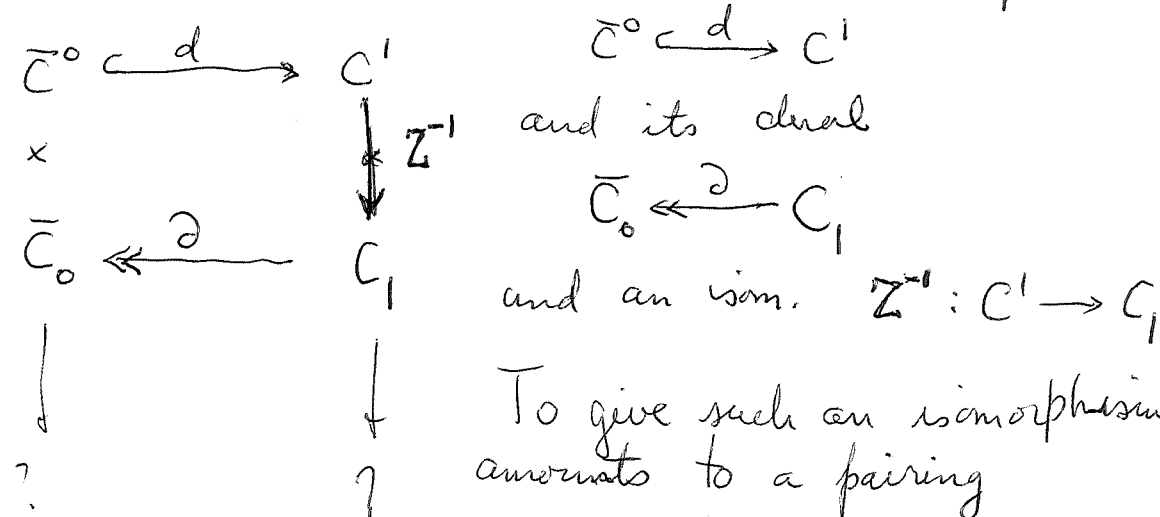 C̄⁰ ⊂—d→ C¹
×
Z⁻¹
C̄₀ ↞—∂— C₁
? ?
C̄⁰ ⊂—d→ C¹
and its dual
C̄₀ ↞—∂— C₁
and an isom. Z⁻¹ : C¹ → C₁
To give such an isomorphism
amounts to a pairing